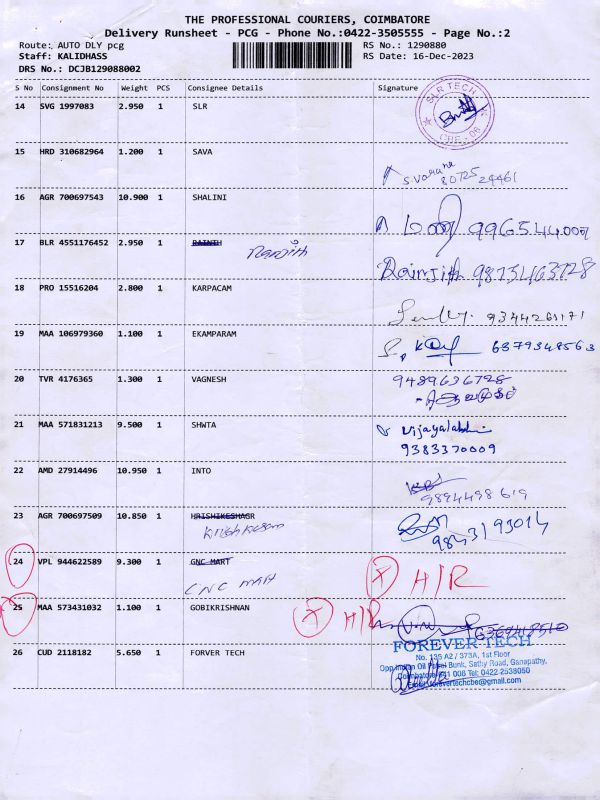 THE PROFESSIONAL COURIERS, COIMBATORE
Delivery Runsheet - PCG - Phone No.:0422-3505555 - Page No.:2
Route: AUTO DLY pcg
RS No.: 1290880
Staff: KALIDHASS
RS Date: 16-Dec-2023
DRS No.: DCJB129088002
S No Consignment No Weight PCS Consignee Details Signature
14 SVG 1997083 2.950 1 SLR
SLR TECH
CBE - 06
15 HRD 310682964 1.200 1 SAVA
80725 24461
16 AGR 700697543 10.900 1 SHALINI
17 BLR 4551176452 2.950 1 RANJTH
Ranjith
Ranjith 9873463728
18 PRO 15516204 2.800 1 KARPACAM
9344261171
19 MAA 106979360 1.100 1 EKAMPARAM
6379348563
20 TVR 4176365 1.300 1 VAGNESH
9489636728
21 MAA 571831213 9.500 1 SHWTA
Vijayalakshmi
9383370009
22 AMD 27914496 10.950 1 INTO
9894498619
23 AGR 700697509 10.850 1 HRISHIKESHAGR
9843193014
24 VPL 944622589 9.300 1 GNC MART
CNC MAH
H/R
25 MAA 573431032 1.100 1 GOBIKRISHNAN
H/R
6369418510
26 CUD 2118182 5.650 1 FORVER TECH
FOREVER TECH
No. 136 A2 / 373A, 1st Floor
Opp Indian Oil Petrol Bunk, Sathy Road, Ganapathy,
Coimbatore 641 006 Tel: 0422 2538050
Email: forevertechcbe@gmail.com